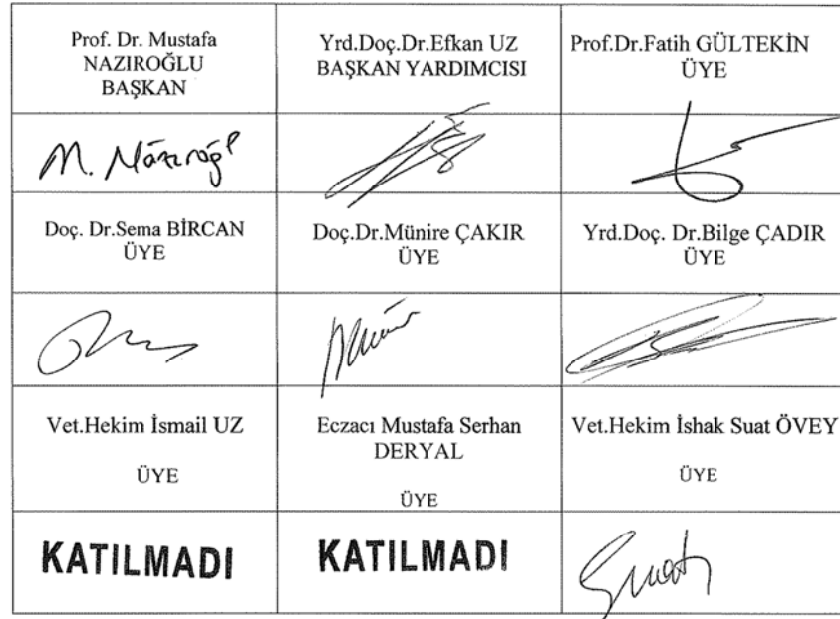 Prof. Dr. Mustafa
NAZIROĞLU
BAŞKAN
Yrd.Doç.Dr.Efkan UZ
BAŞKAN YARDIMCISI
Prof.Dr.Fatih GÜLTEKİN
ÜYE
M. Nazıroğl
Doç. Dr.Sema BİRCAN
ÜYE
Doç.Dr.Münire ÇAKIR
ÜYE
Yrd.Doç. Dr.Bilge ÇADIR
ÜYE
Vet.Hekim İsmail UZ
ÜYE
Eczacı Mustafa Serhan
DERYAL
ÜYE
Vet.Hekim İshak Suat ÖVEY
ÜYE
KATILMADI
KATILMADI
Suat